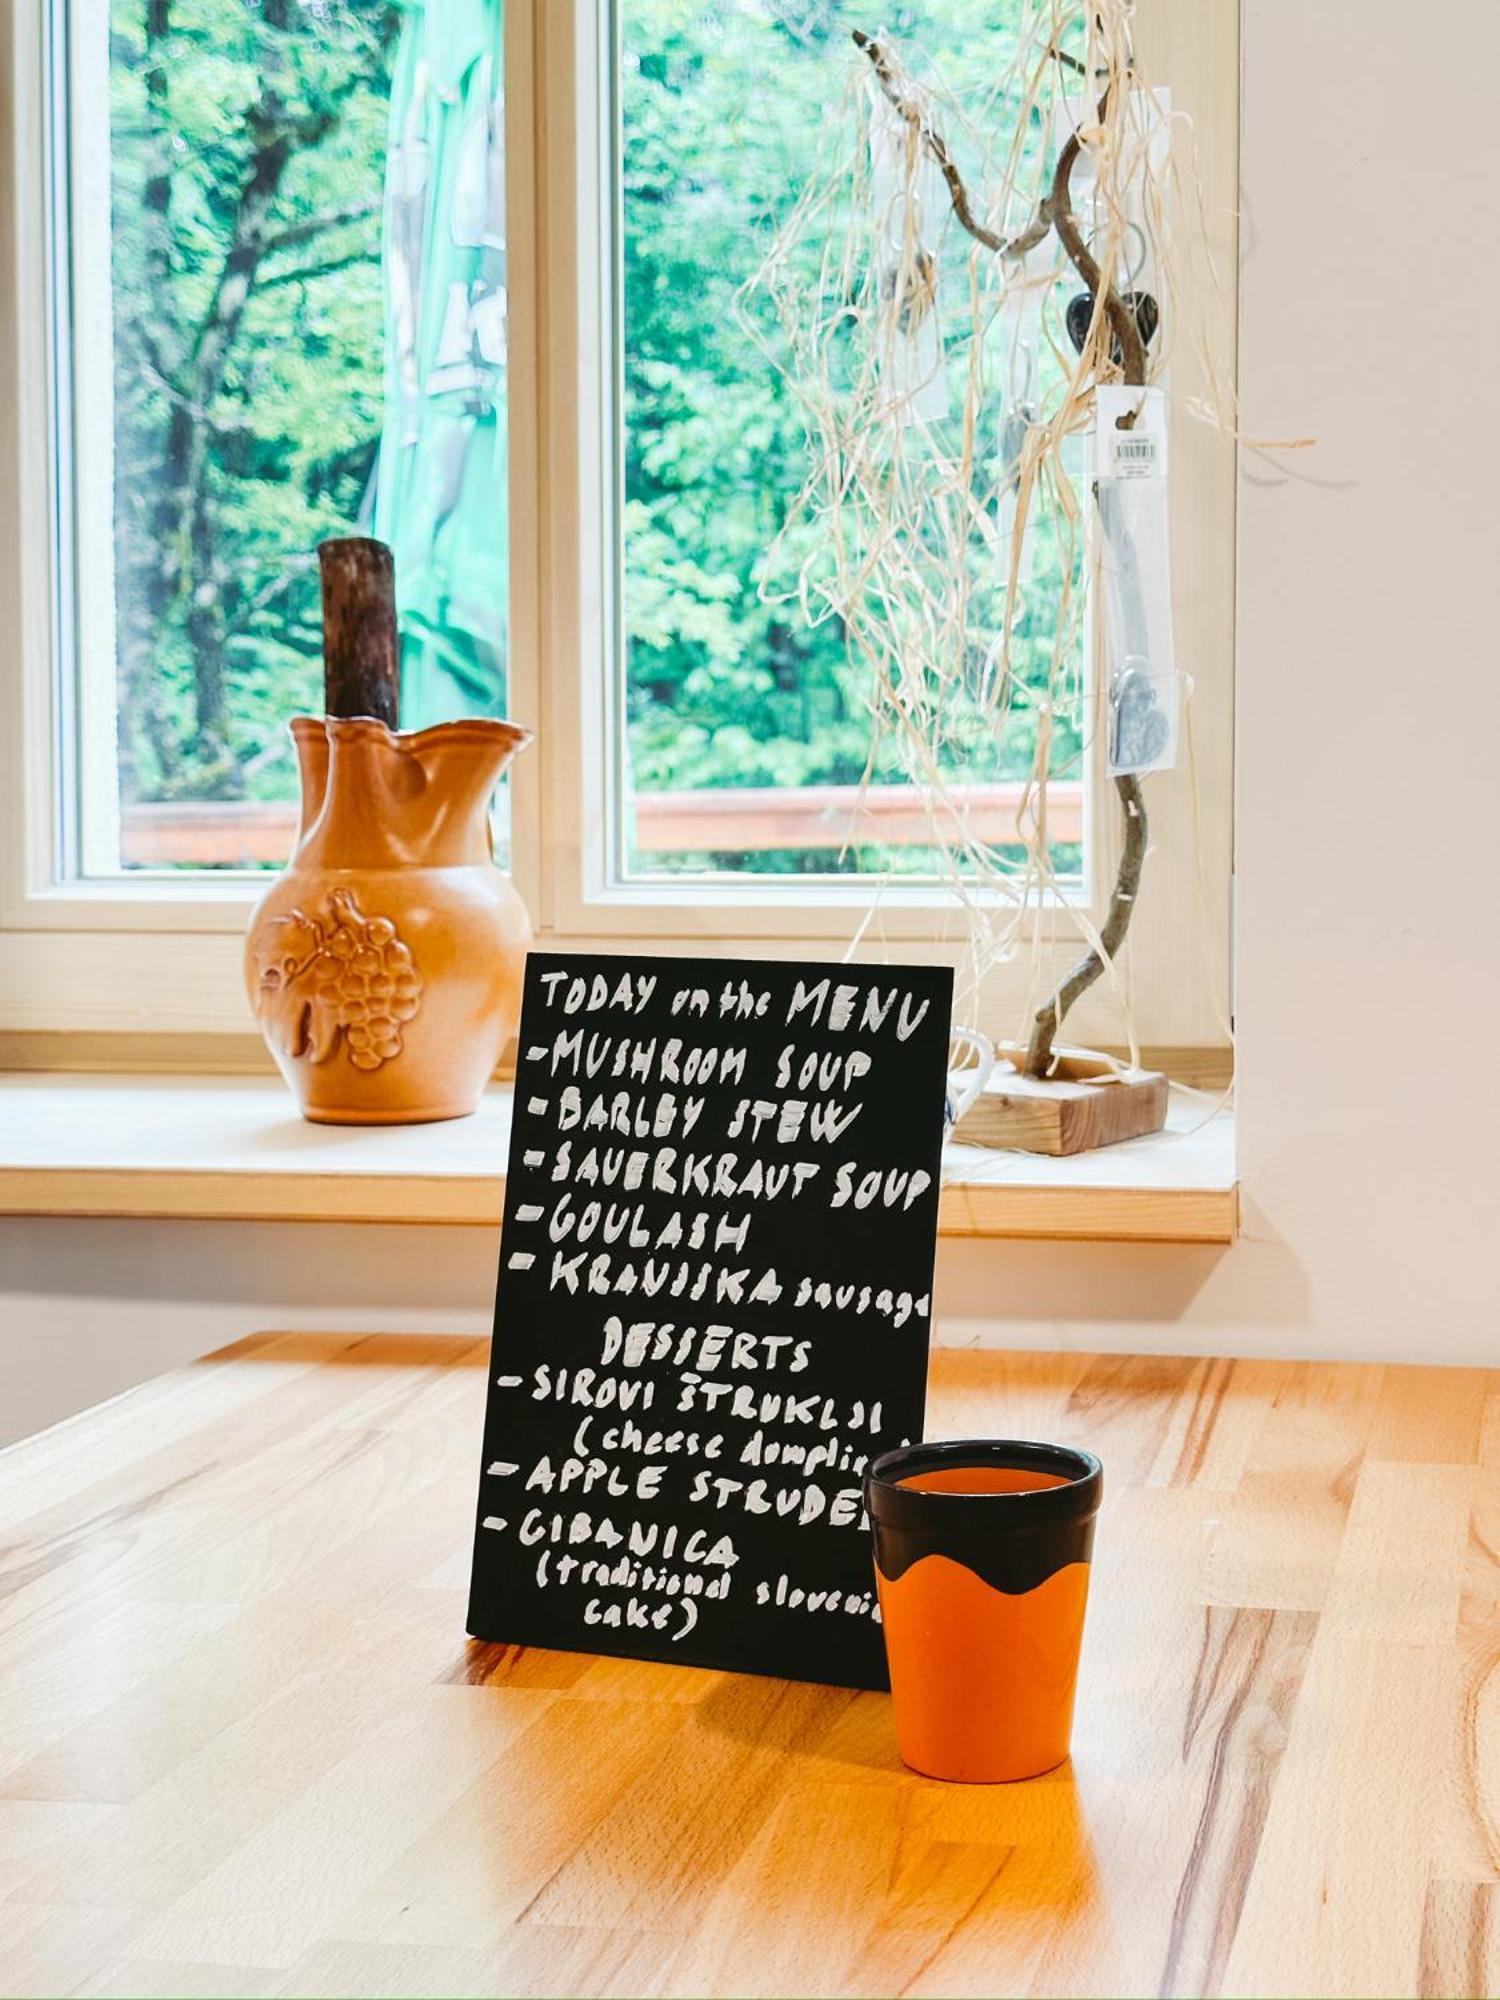 TODAY on the MENU
- MUSHROOM SOUP
- BARLEY STEW
- SAUERKRAUT SOUP
- GOULASH
- KRANJSKA sausage
DESSERTS
- SIROVI ŠTRUKLJI
(cheese dumplin
- APPLE STRUDEL
- GIBANICA
(traditional slovenia
cake)